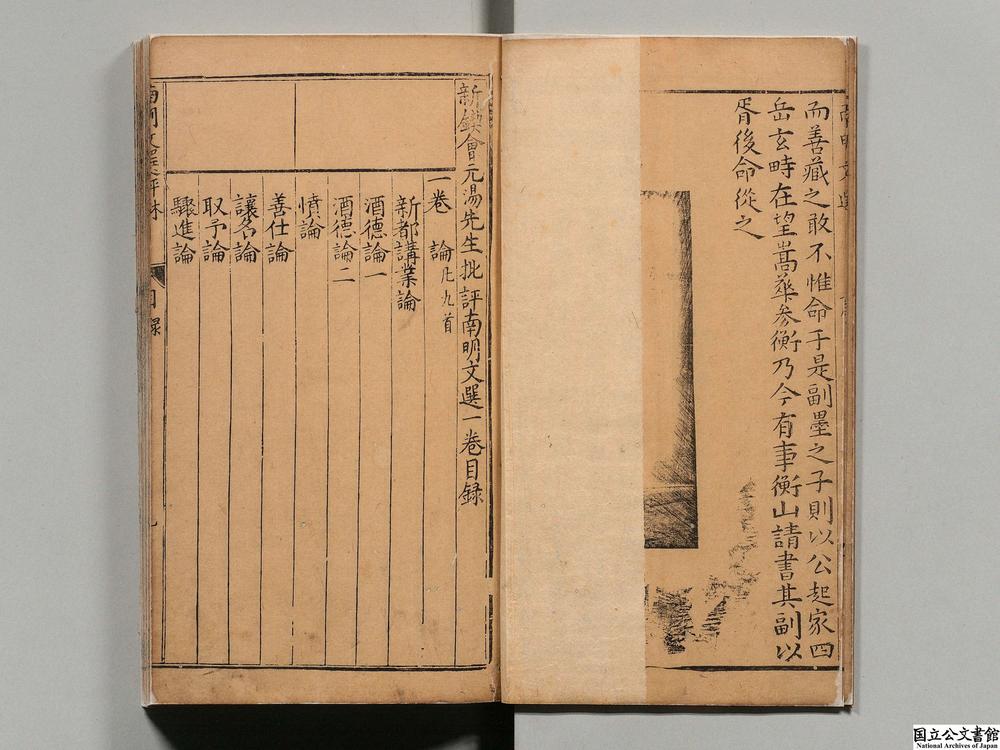 而善藏之敢不惟命于是副墨之子則以公起家四
岳玄畤在望嵩華参衡乃今有事衡山請書其副以
胥後命從之
新鍥會元湯先生批評南明文選一卷目録
一卷 論凡九首
新都講業論
酒德論一
酒德論二
憤論
善仕論
讓名論
取予論
驟進論
目録
国立公文書館
National Archives of Japan